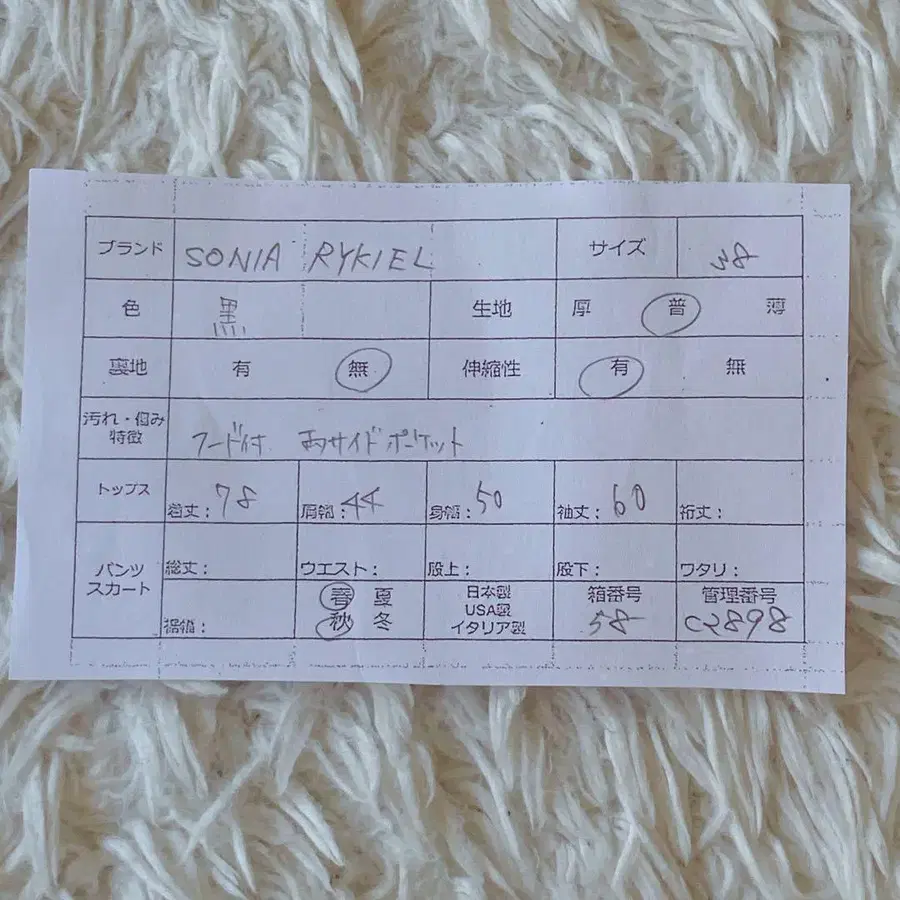 ブランド SONIA RYKIEL サイズ 38
色 黒 生地 厚 普 薄
裏地 有 無 伸縮性 有 無
汚れ・傷み
特徴 フード付 両サイドポケット
トップス 着丈：78 肩幅：44 身幅：50 袖丈：60 裄丈：
パンツ
スカート 総丈： ウエスト：股上： 股下： ワタリ：
裾幅： 春 夏 日本製 箱番号 管理番号
秋 冬 USA製 58 C2898
イタリア製